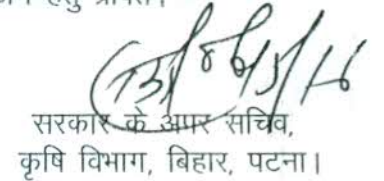 हेतु
सरकार के अपर सचिव,
कृषि विभाग, बिहार, पटना।